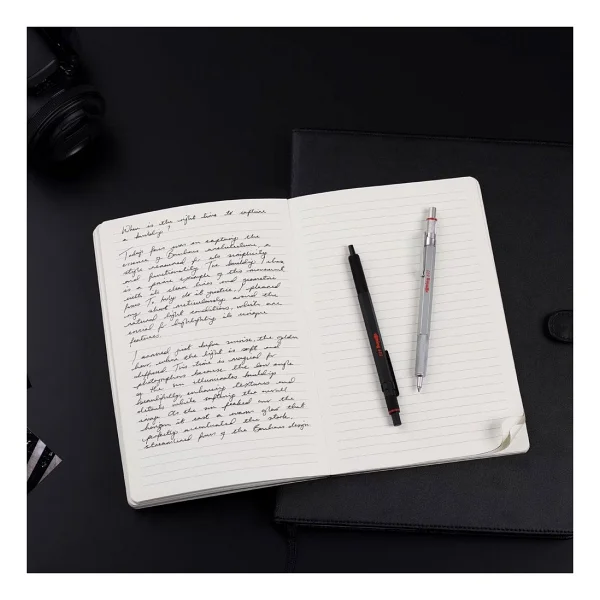 When is the right time to capture
a building?
Today focus was on capturing the
essence of Bauhaus architecture, a
style renowned for its simplicity
and functionality. The building I chose
is a prime example of this movement
with its clean lines and geometric
forms. To help do it justice, I planned
my shoot meticulously around the
natural light conditions, which are
crucial for highlighting its unique
features.
I arrived just before sunrise, the golden
hour, when the light is soft and
diffused. This time is magical for
photographers because the low angle
of the sun illuminates buildings
beautifully, enhancing textures and
details while softening the overall
image. As the sun peaked over the
horizon it cast a warm glow that
perfectly accentuated the stark,
streamlined form of the Bauhaus design.
rotring
rotring